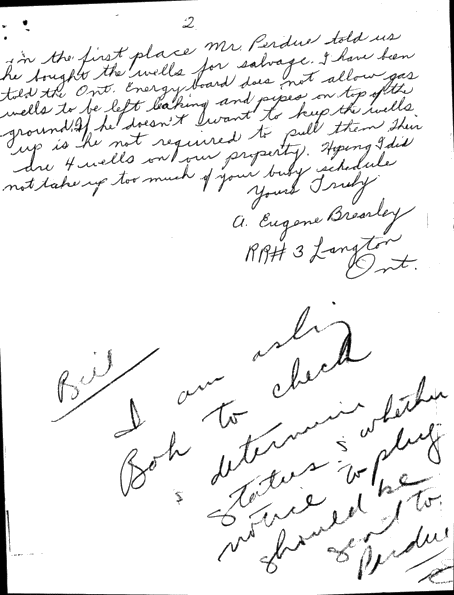 2
in the first place Mr. Perdue told us
he bought the wells for salvage. I have been
told the Ont. Energy board does not allow gas
wells to be left leaking and pipes on top of the
ground. If he doesn't want to keep the wells
up is he not required to pull them. Their
are 4 wells on our property. Hoping I did
not take up too much of your busy schedule
Yours Truly
A. Eugene Brearley
RR# 3 Langton
Ont.
Bill
I am asking
Bob to check
& determine
status & whether
notice to plug
should be
sent to
Perdue